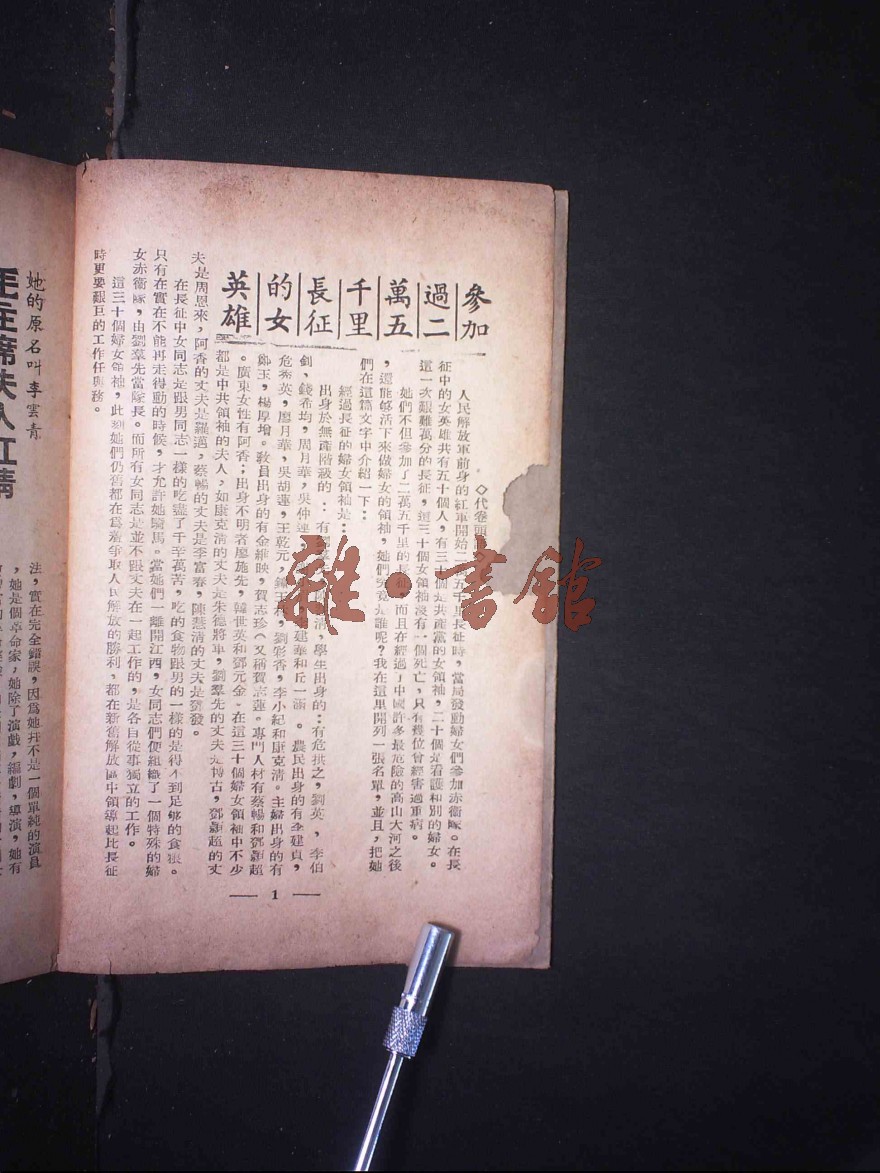 參加
過二
萬五
千里
長征
的女
英雄
◇代卷頭
人民解放軍前身的紅軍開始二萬五千里長征時，當局發動婦女們參加赤衛隊。在長
征中的女英雄共有五十個人，有三十個是共產黨的女領袖，二十個是看護和別的婦女。
這一次艱難萬分的長征，這三十個女領袖沒有一個死亡，只有幾位曾經害過重病。
她們不但參加了二萬五千里的長征，而且在經過了中國許多最危險的高山大河之後
，還能够活下來做婦女的領袖，她們究竟是誰呢？我在這里開列一張名單，並且，把她
們在這篇文字中介紹一下：
經過長征的婦女領袖是：
出身於無產階級的：有 清，學生出身的：有危拱之，劉英，李伯
釗、錢希均，周月華，吳仲連 建華和丘一涵。農民出身的有李建貞，
危秀英，廖月華，吳胡蓮，王乾元，鍾玉林，劉彩香，李小紀和康克清。主婦出身的有
鄭玉，楊厚增。教員出身的有金維映，賀志珍（又稱賀志蓮。專門人材有蔡暢和鄧穎超
。廣東女性有阿香；出身不明者廖施先，韓世英和鄧元金。在這三十個婦女領袖中不少
都是中共領袖的夫人，如康克清的丈夫是朱德將軍，劉羣先的丈夫是博古，鄧穎超的丈
夫是周恩來，阿香的丈夫是羅邁，蔡暢的丈夫是李富春，陳慧清的丈夫是鄧發。
在長征中女同志是跟男同志一樣的吃盡了千辛萬苦，吃的食物跟男的一樣的是得不到足够的食糧。
只有在實在不能再走得動的時候，才允許她騎馬。當她們一離開江西，女同志們便組織了一個特殊的婦
女赤衛隊，由劉羣先當隊長。而所有女同志是並不跟丈夫在一起工作的，是各自從事獨立的工作。
這三十個婦女領袖，此刻她們仍舊都在爲着爭取人民解放的勝利，都在新舊解放區中領導起比長征
時更要艱巨的工作任務。
— 1 —
她的原名叫李雲青
毛主席夫人江青
法，實在完全錯誤，因爲她幷不是一個單純的演員
，她是個革命家，她除了演戲，編劇，導演，她有
雜·書館